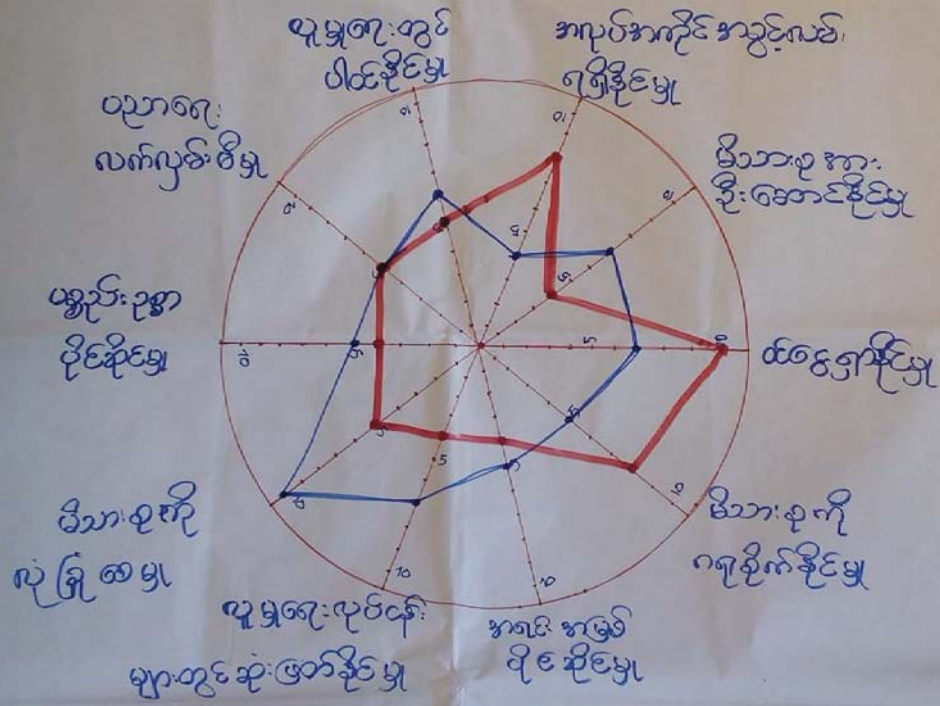 လူမှုရေးတွင်
ပါဝင်နိုင်မှု
အလုပ်အကိုင် အခွင့်လမ်း
ရရှိနိုင်မှု
မိသားစု အား
ဦးဆောင်နိုင်မှု
ဝင်ငွေရှာနိုင်မှု
မိသားစု ကို
ဂရုစိုက်နိုင်မှု
အရင်း အမြစ်
ပိုင် ဆိုင်မှု
လူမှုရေးလုပ်ငန်း
များတွင် ဆုံးဖြတ်နိုင်မှု
မိသားစု ကို
လုံ ခြုံ စေ မှု
ပစ္စည်း ဥစ္စာ
ပိုင်ဆိုင်မှု
ပညာရေး
လက်လှမ်း မီမှု
10
10
10
10
10
10
10
10
5
5
5
5
5